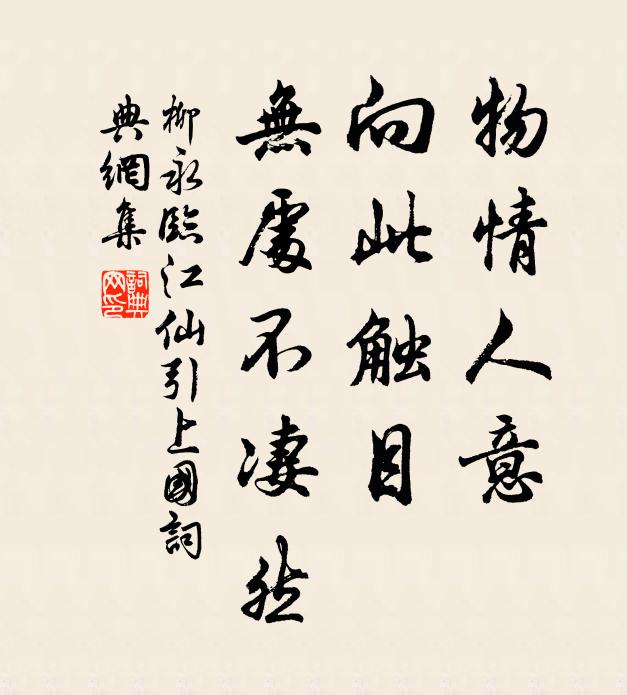 物情人意
向此触目
無處不凄然
柳永臨江仙引上國詞
典網集
詞典網印